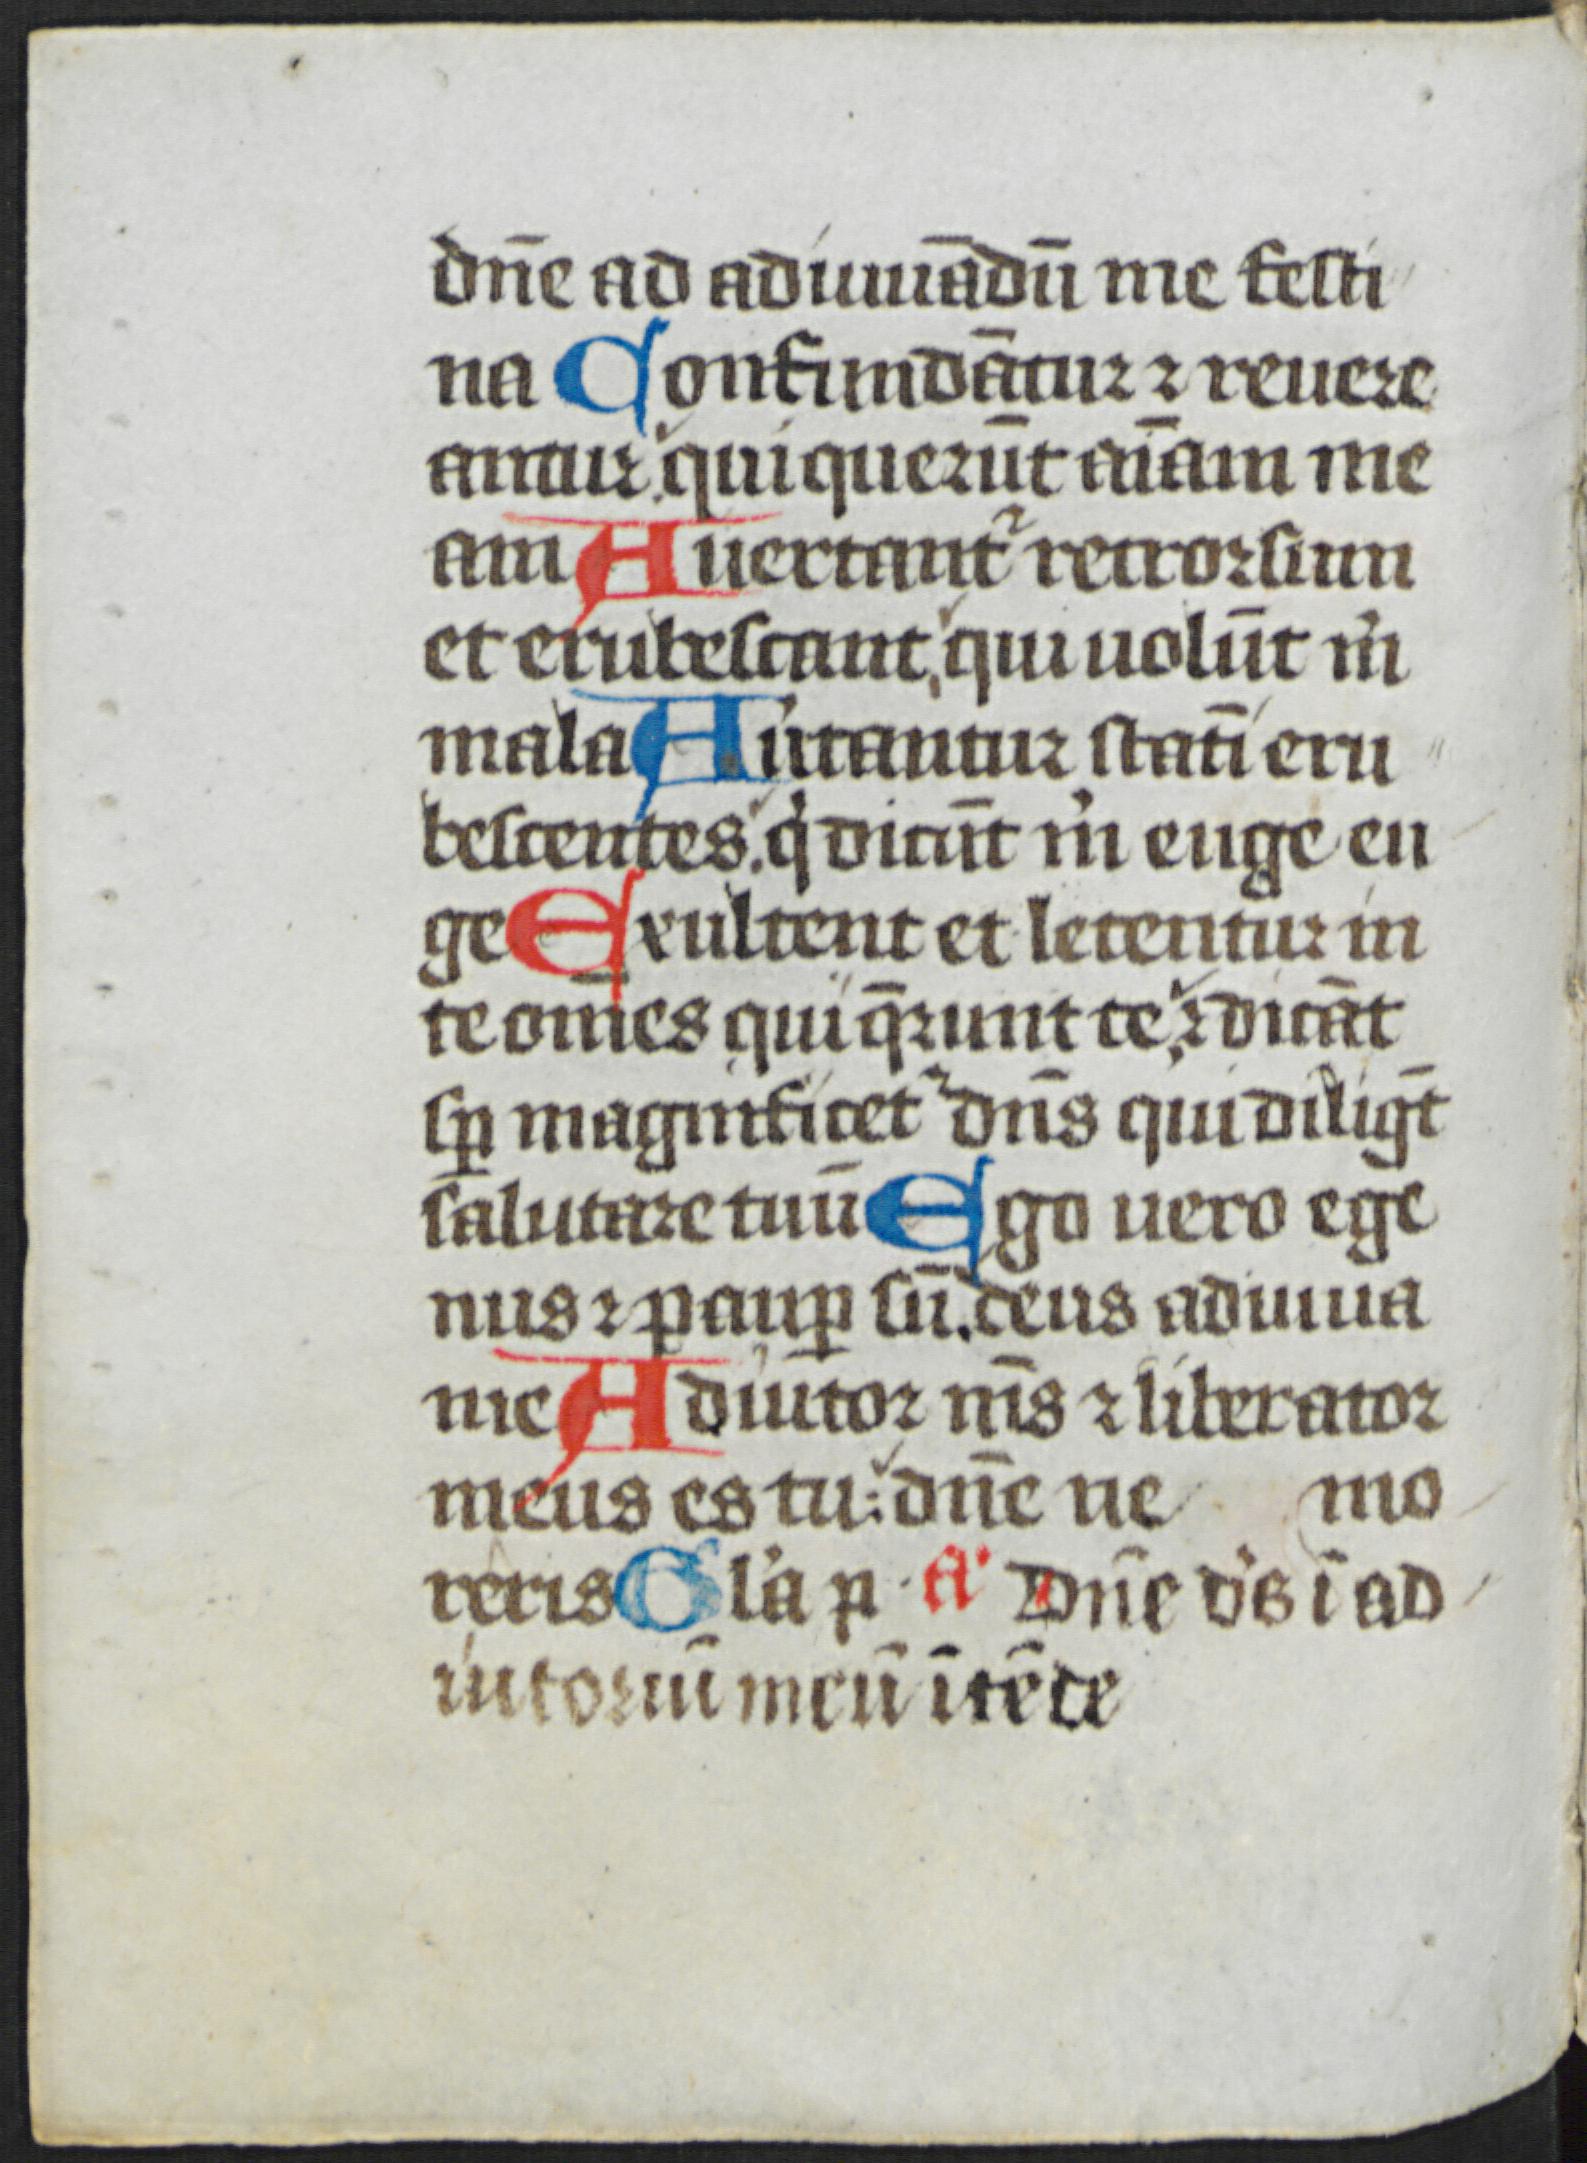 dn̄e ad adiuuādū me festi
na Confundātur ⁊ reuere
antur qui querūt aīam me
am Auertant᷑ retrorsum
et erubescant, qui uolūt m̓
mala Au̓tantur statī eru
bescentes. q̓ dicūt m̓ euge eu
ge Exultent et letentur in
te om̄es qui q̄runt te, ⁊ dicāt
sꝑ magnificet᷑ dn̄s qui diligt̄
salutare tuū Ego uero ege
nus ⁊ pauꝑ sū. deus adiuua
me Adiūtor m̄s ⁊ liberator
meus es tu: dn̄e ne mo
reris Gl̓a p A᷎ Dn̄e d̓s ī ad
iutoriū meū ītēde